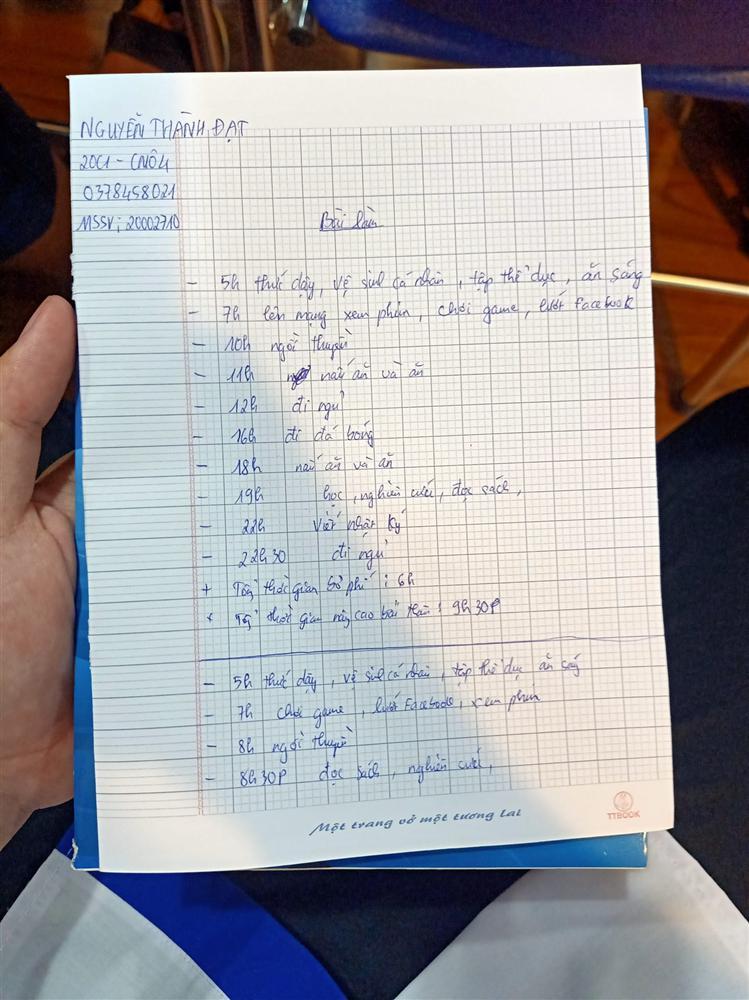 NGUYỄN THÀNH ĐẠT
20C1 - CNÔ4
0378458021
MSSV: 20002710
Bài làm
- 5h thức dậy, vệ sinh cá nhân, tập thể dục, ăn sáng
- 7h lên mạng xem phim, chơi game, lướt facebook
- 10h ngồi thuyền
- 11h nấu ăn và ăn
- 12h đi ngủ
- 16h đi đá bóng
- 18h nấu ăn và ăn
- 19h học, nghiên cứu, đọc sách,
- 22h viết nhật ký
- 22h30 đi ngủ
+ Tổng thời gian bỏ phí: 6h
+ Tổng thời gian nâng cao bản thân: 9h30P
- 5h thức dậy, vệ sinh cá nhân, tập thể dục ăn sáng
- 7h chơi game, lướt Facebook, xem phim
- 8h ngồi thuyền
- 8h30P đọc sách, nghiên cứu,
Một trang vở một tương lai
TTBOOK